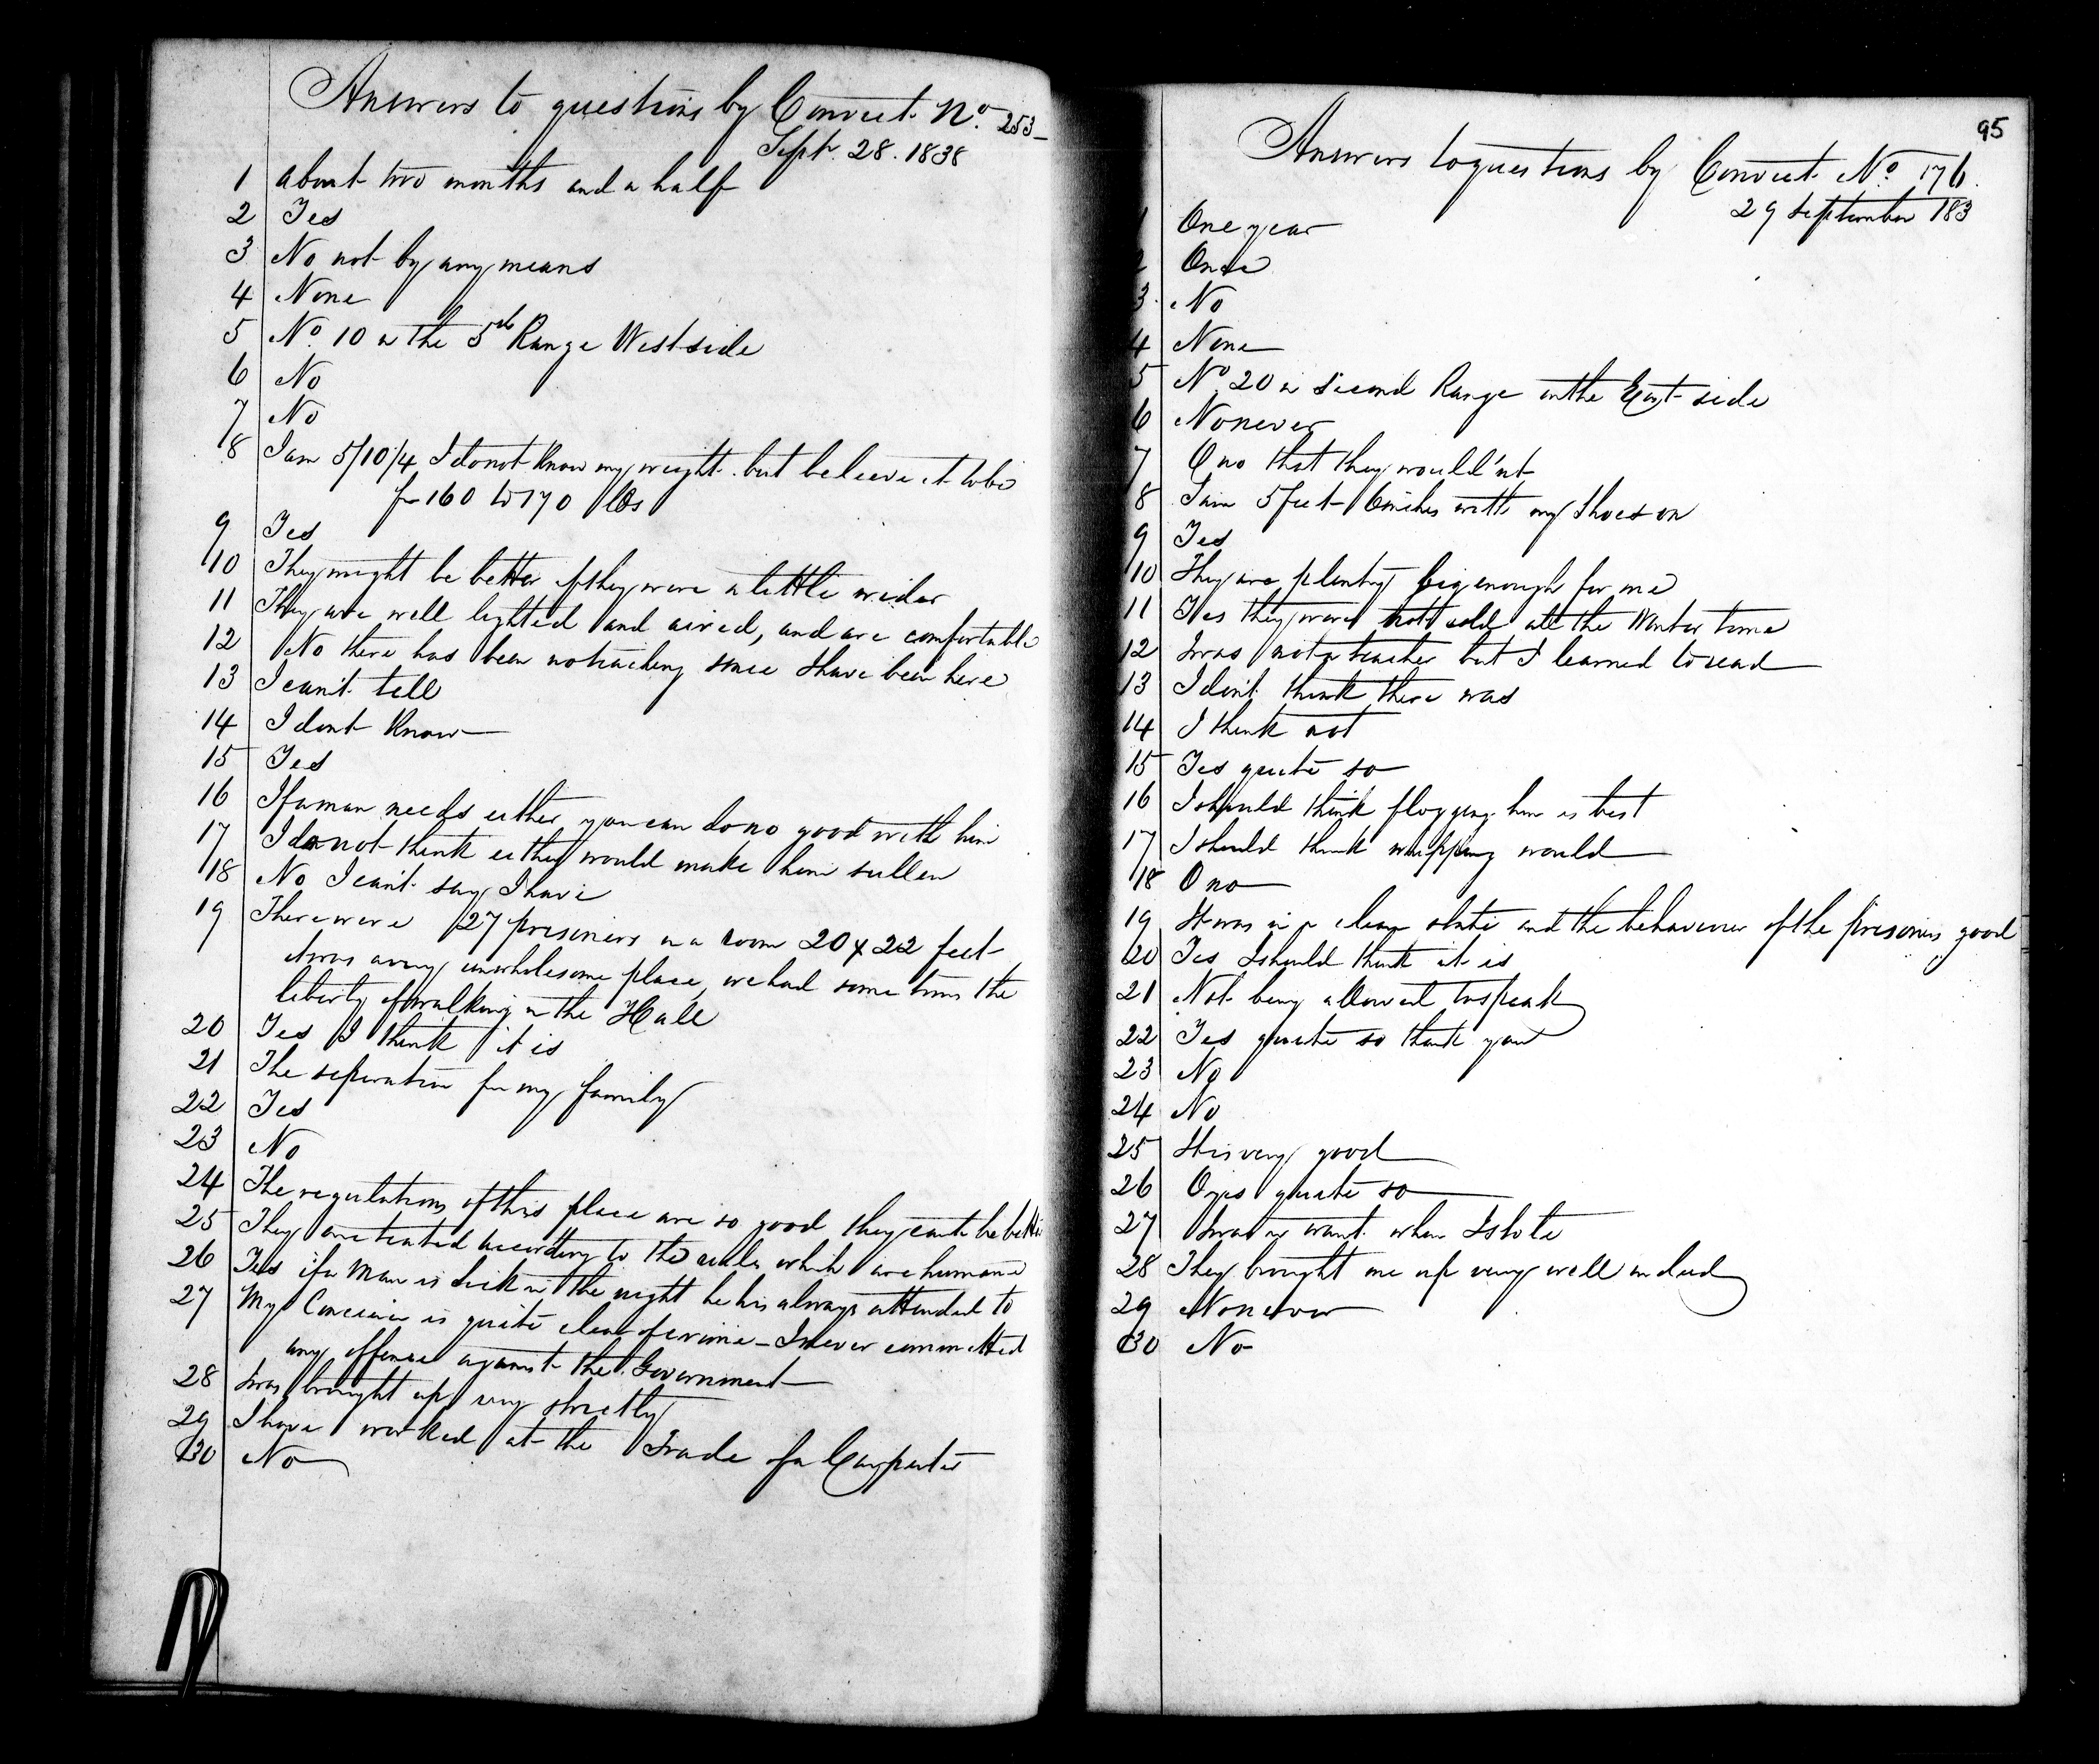 Answers to questions by Convict No. 253
Sept. 28. 1838
1 about two months and a half
2 Yes
3 No not by any means
4 None
5 No 10 in the 5th Range West side
6 No
7 No
8 I am 5/10/4, I do not know my weight but believe it to be
fm 160 to 170 lbs
9 Yes
10 They might be better if they were a little wider
11 They are well lighted and aired, and are comfortable
12 No there has been no teaching since I have been here
13 I can't tell
14 I dont know
15 Yes
16 If a man needs either you can do no good with him
17 I do not think either would make him sullen
18 No I can't say I have
19 There were 27 prisoners in a room 20 x 22 feet
it was a very unwholesome place, we had some times the
liberty of walking in the Hall
20 Yes I think it is
21 The seperation fm my family
22 Yes
23 No
24 The regulations of this place are so good they cant be better
25 They are treated according to the rules which are humane
26 Yes if a Man is Sick in the night he his always attended to
27 My Concience is quite clear of crime – I never committed
any offence against the Government
28 I was brought up very strictly
29 I have worked at the Trade of a Carpenter
30 No
95
Answers to questions by Convict No. 176.
29 September 183
1 One year
2 Once
3 No
4 None
5 No. 20 in Second Range on the East side
6 No never
7 O no that they would'nt
8 I am 5 feet 6 inches with my Shoes on
9 Yes
10 They are plenty big enough for me
11 Yes they were not cold all the Winter time
12 I was not a teacher but I learned to read
13 I don't think there was
14 I think not
15 Yes quite so
16 I should think flogging him is best
17 I should think whipping would
18 O no
19 It was in a clean state and the behaviour of the prisoners good
20 Yes I should think it is
21 Not being allowed to speak
22 Yes quite so thank you
23 No
24 No
25 It is very good
26 O yes quite so
27 I was in want when I stole
28 They brought me up very well indeed
29 No never
30 No